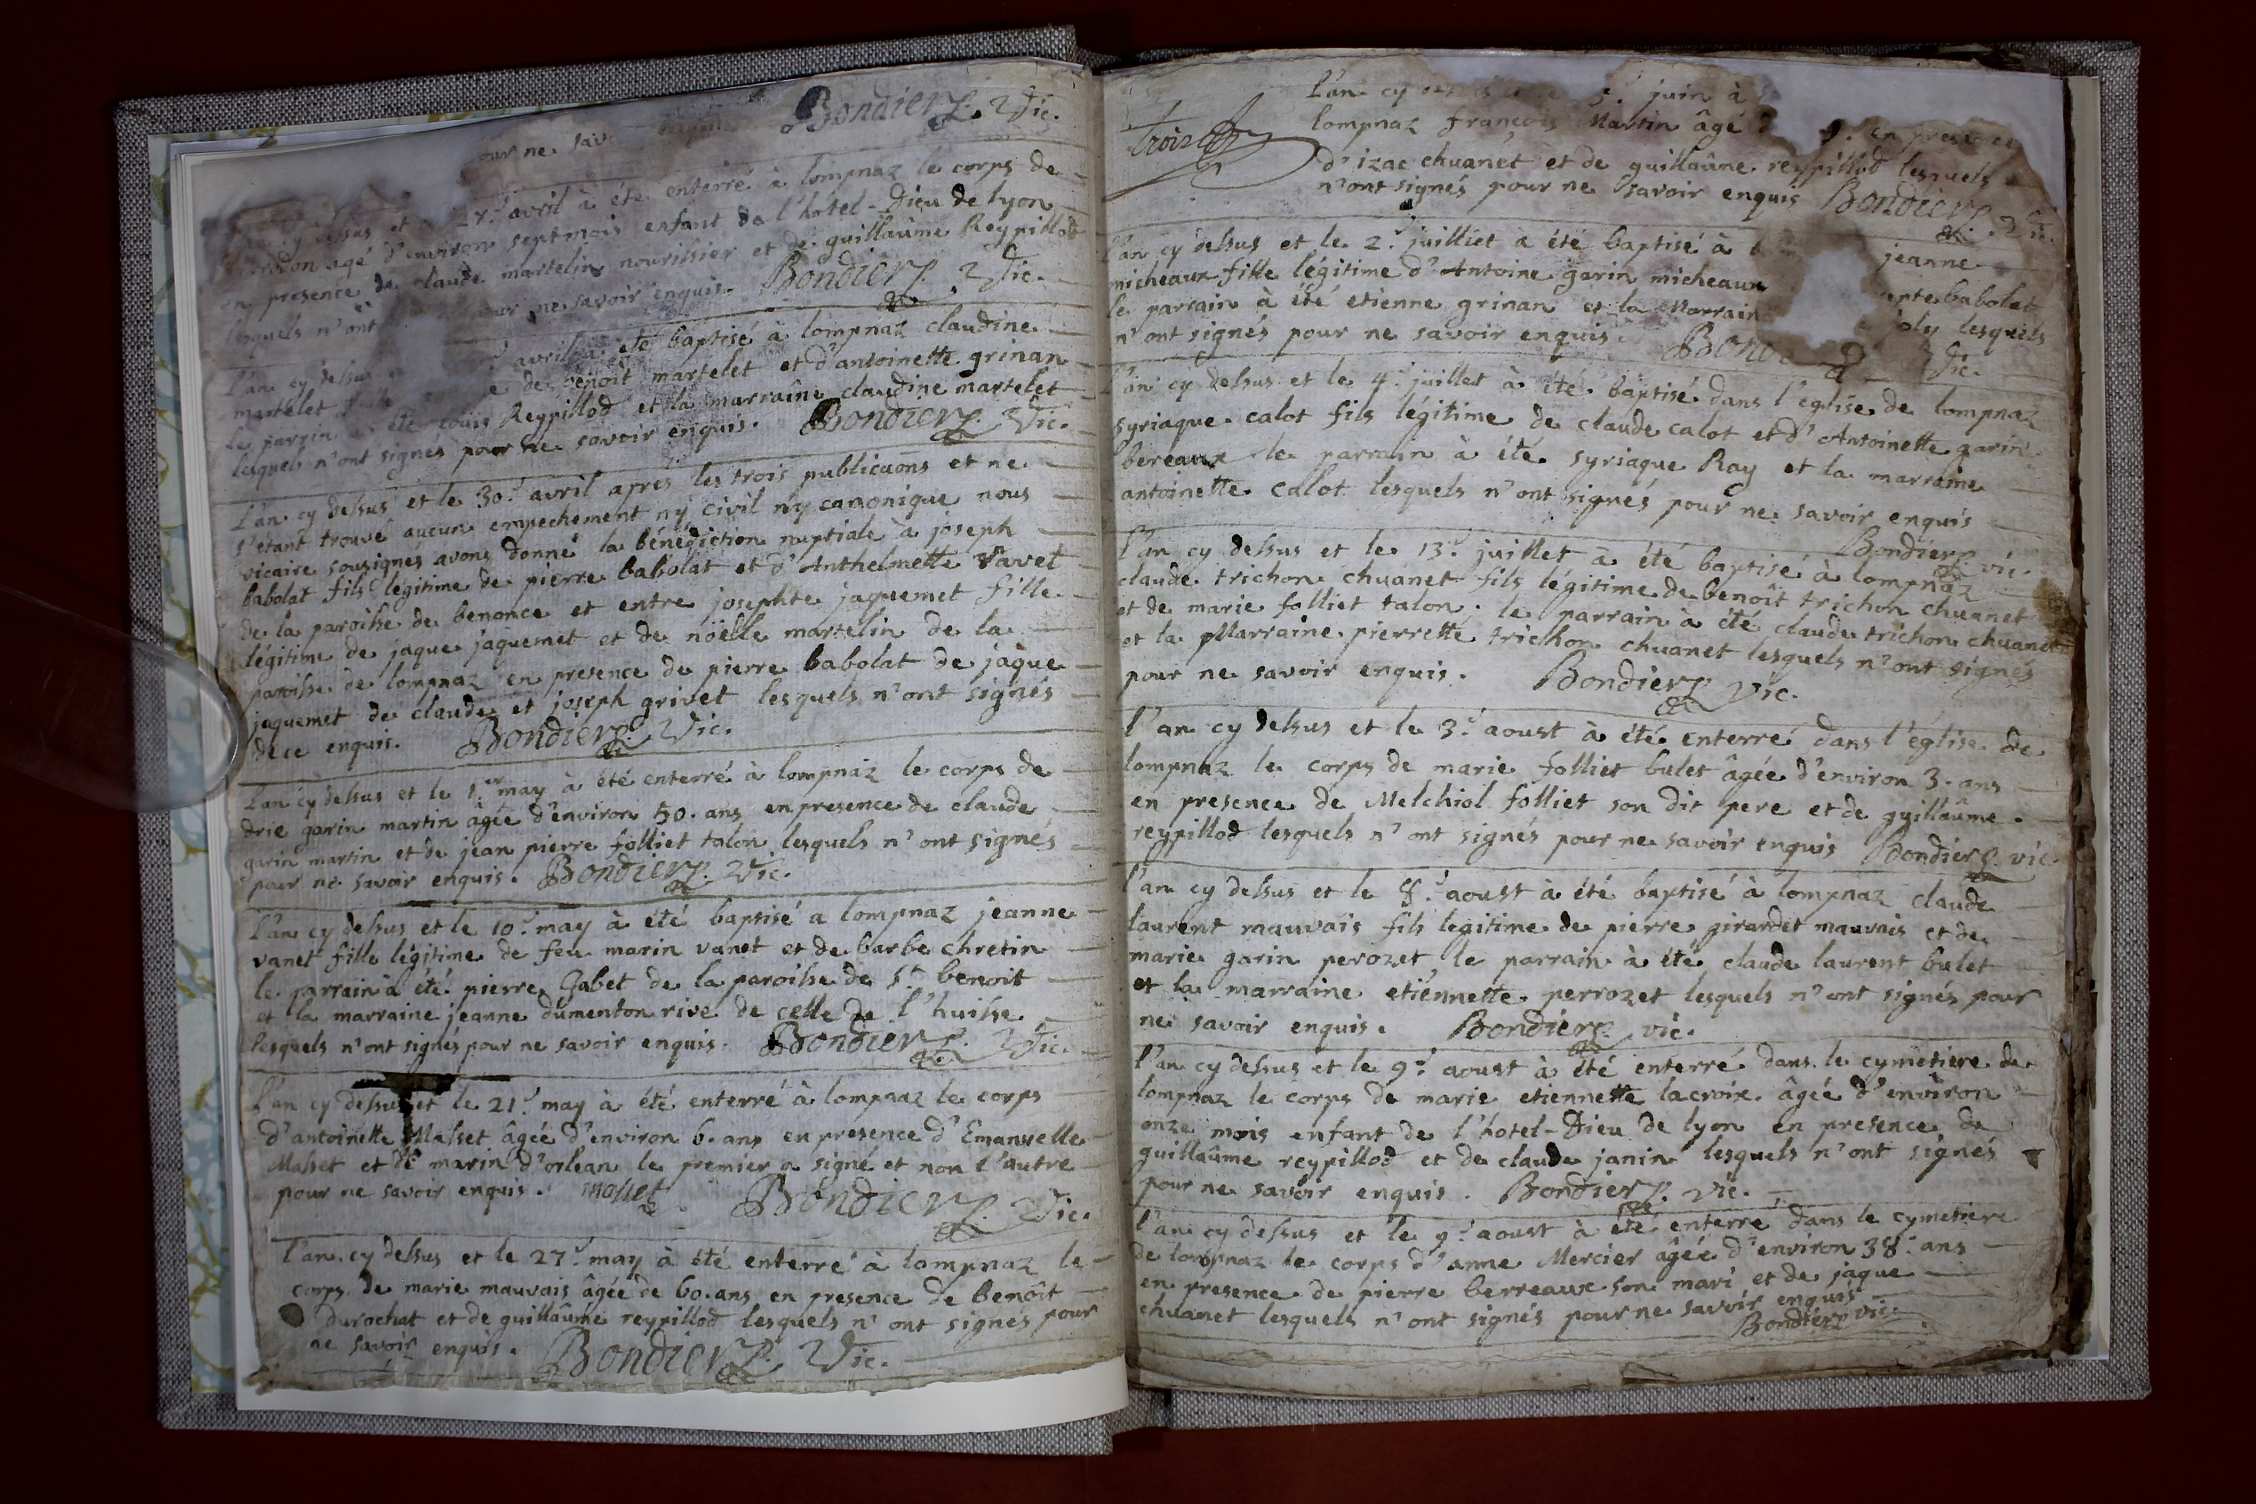 our ne sav Bondier p. Vic.
cy dessus et 7.e avril à été enterré à lompnaz le corps de
agé d'environ sept mois enfant de l'hôtel-Dieu de lyon
en presence de claude martelin nourissier et de guillaume Reypillod
lesquels n'ont pour ne savoir enquis. Bondier p. Vic.
l'an cy dessus avril à été baptisé à lompnaz claudine
martelet de benoît martelet et d'antoinette grinan
le parrin été louis Reypillod et la marraine claudine martelet
lesquels n'ont signés pour ne savoir enquis. Bondier p. Vic.
L'an cy dessus et le 30.e avril apres les trois publicaons et ne
s'étant trouvé aucun empechement ny civil ny canonique nous
vicaire sousignés avons donné la bénédiction nuptiale à joseph
babolat fils légitime de pierre babolat et d'Anthelmette ravet
de la paroisse de benonce et entre josephte jaquemet fille
légitime de jaque jaquemet et de nöelle martelin de la
paroisse de lompnaz en presence de pierre babolat de jaque
jaquemet de claude et joseph grivet lesquels n'ont signés
de ce enquis. Bondier p. Vic.
L'an cy dessus et le 1.er may à été enterré à lompnaz le corps de
drie garin martin âgée d'environ 50. ans en presence de claude
garin martin et de jean pierre folliet talon lesquels n'ont signés
pour ne savoir enquis. Bondier p. Vic.
l'an cy dessus et le 10.e may à été baptisé a lompnaz jeanne
vanet fille légitime de feu marin vanet et de barbe chretin
le parrain à été pierre Gabet de la paroisse de S.t benoit
et la marraine jeanne dumenton rive de celle de l'huisse
lesquels n'ont signés pour ne savoir enquis. Bondier p. Vic.
l'an cy dessus et le 21.e may à été enterré à lompnaz le corps
d'antoinette Masset âgée d'environ 6. ans en presence d'Emanuelle
Masset et de marin d'orlean le premier a signé et non l'autre
pour ne savoir enquis. masset Bondier p. Vic.
l'an cy dessus et le 27.e may à été enterré à lompnaz le
corps de marie mauvais âgée de 60. ans en presence de benoît
durochat et de guillaûme reypillod lesquels n'ont signés pour
ne savoir enquis. Bondier p. Vic.
trois
l'an cy 5.e juin à
lompnaz françois Martin âgé en presence
d'izac chuanet et de guillaûme reypillod lesquels
n'ont signés pour ne savoir enquis Bondier p. Vic.
l'an cy dessus et le 2.e juilliet à été baptisé à jeanne
micheaux fille légitime d'Antoine garin micheaux babolat
le parrain à été etienne grinan et la Marrain joly lesquels
n'ont signés pour ne savoir enquis Bond Vic.
l'an cy dessus et le 4.e juillet à été baptisé dans l'église de lompnaz
syriaque calot fils légitime de claude calot et d'Antoinette garin
bereaux le parrain à été syriaque Ray et la marraine
antoinette calot lesquels n'ont signés pour ne savoir enquis
Bondier p. vic.
l'an cy dessus et le 13.e juillet à été baptisé à lompnaz
claude trichon chuanet fils légitime de benoît trichon chuanet
et de marie folliet talon. le parrain à été claude trichon chuanet
et la Marraine pierrette trichon chuanet lesquels n'ont signés
pour ne savoir enquis. Bondier p. Vic.
l'an cy dessus et le 3.e aoust à été enterré dans l'église de
lompnaz le corps de marie folliet bulet âgée d'environ 3. ans
en presence de Melchiol folliet son dit pere et de guillaûme
reypillod lesquels n'ont signés pour ne savoir enquis Bondier p. vic.
l'an cy dessus et le 8.e aoust à été baptisé à lompnaz claude
laurent mauvais fils legitime de pierre girardet mauvais et de
marie garin perozet le parrain à été claude laurent bulet
et la marraine etiénnette perrozet lesquels n'ont signés pour
ne savoir enquis. Bondier p. vic.
l'an cy dessus et le 9.e aoust à été enterré dans le cymetiere de
lompnaz le corps de marie etiennette lacroix âgée d'environ
onze mois enfant de l'hotel-Dieu de lyon en presence de
guillaûme reypillod et de claude janin lesquels n'ont signés
pour ne savoir enquis. Bondier p. vic.
l'an cy dessus et le 9.e aoust à été enterré dans le cymetiere
de lompnaz le corps d'anne Mercier âgée d'environ 38. ans
en presence de pierre berreaux son mari et de jaque
chuanet lesquels n'ont signés pour ne savoir enquis
Bondier p. vic.